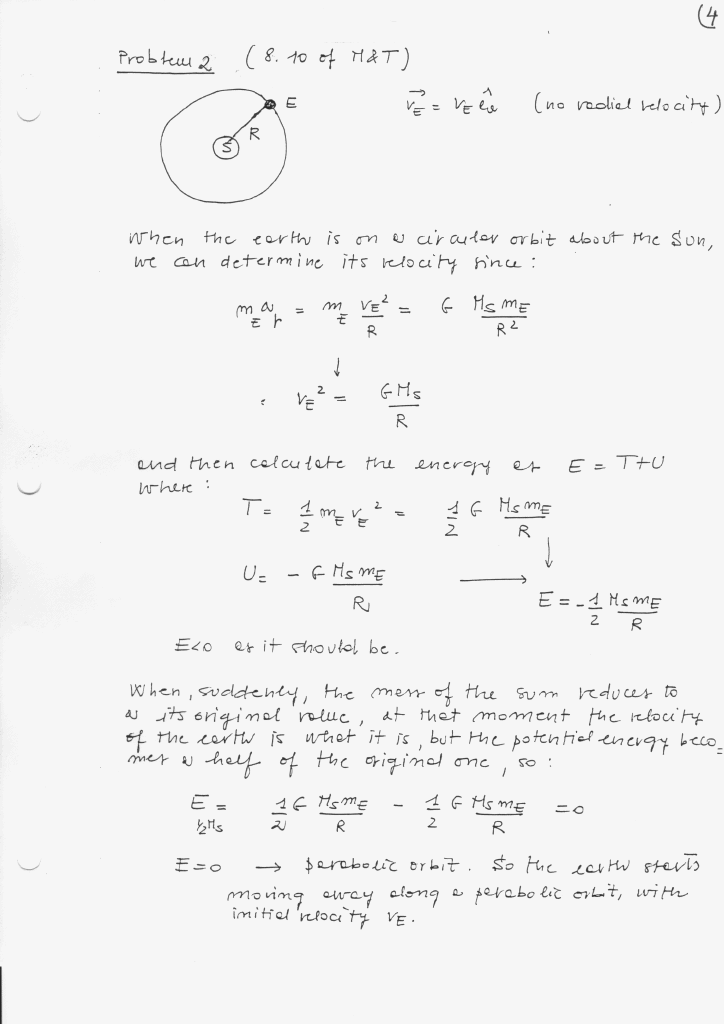 (4
Problem 2 (8.10 of M&T)
E
R
S
v_E = v_E ê_α (no radial velocity)
When the earth is on a circular orbit about the Sun,
we can determine its velocity since:
m_E a_r = m_E v_E²/R = G M_S m_E/R²
↓
v_E² = G M_S/R
and then calculate the energy as E = T+U
where:
T = 1/2 m_E v_E² = 1/2 G M_S m_E/R
↓
U = - G M_S m_E/R →
E = - 1/2 M_S m_E/R
E<0 as it should be.
When, suddenly, the mass of the sum reduces to
a its original value, at that moment the velocity
of the earth is what it is, but the potential energy beco=
mes a half of the original one, so:
E_½M_S = 1/2 G M_S m_E/R - 1/2 G M_S m_E/R = 0
E=0 → parabolic orbit. So the earth starts
moving away along a parabolic orbit, with
initial velocity v_E.